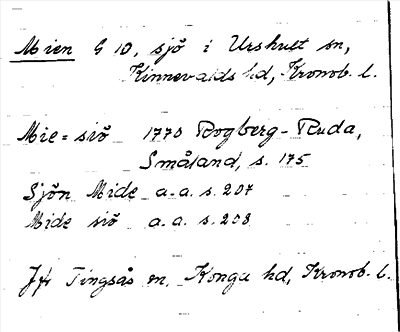 Mien G 10, sjö i Urshult sn,
Kinnevalds hd, Kronob. l.
Mie = siö 1770 Rogberg-Ruda,
Småland, s. 175
Sjön Mide a.a. s. 207
Mide siö a.a. s. 208
Jfr Tingsås sn, Konga hd, Kronob. l.